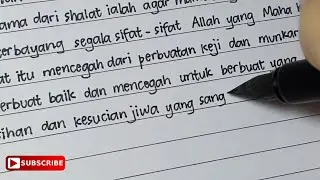 ama dari shalat ialah agar man
terbayang segala sifat-sifat Allah yang Maha
at itu mencegah dari perbuatan keji dan munkar
erbuat baik dan mencegah untuk berbuat yang
sihan dan kesucian jiwa yang sang
SUBSCRIBE